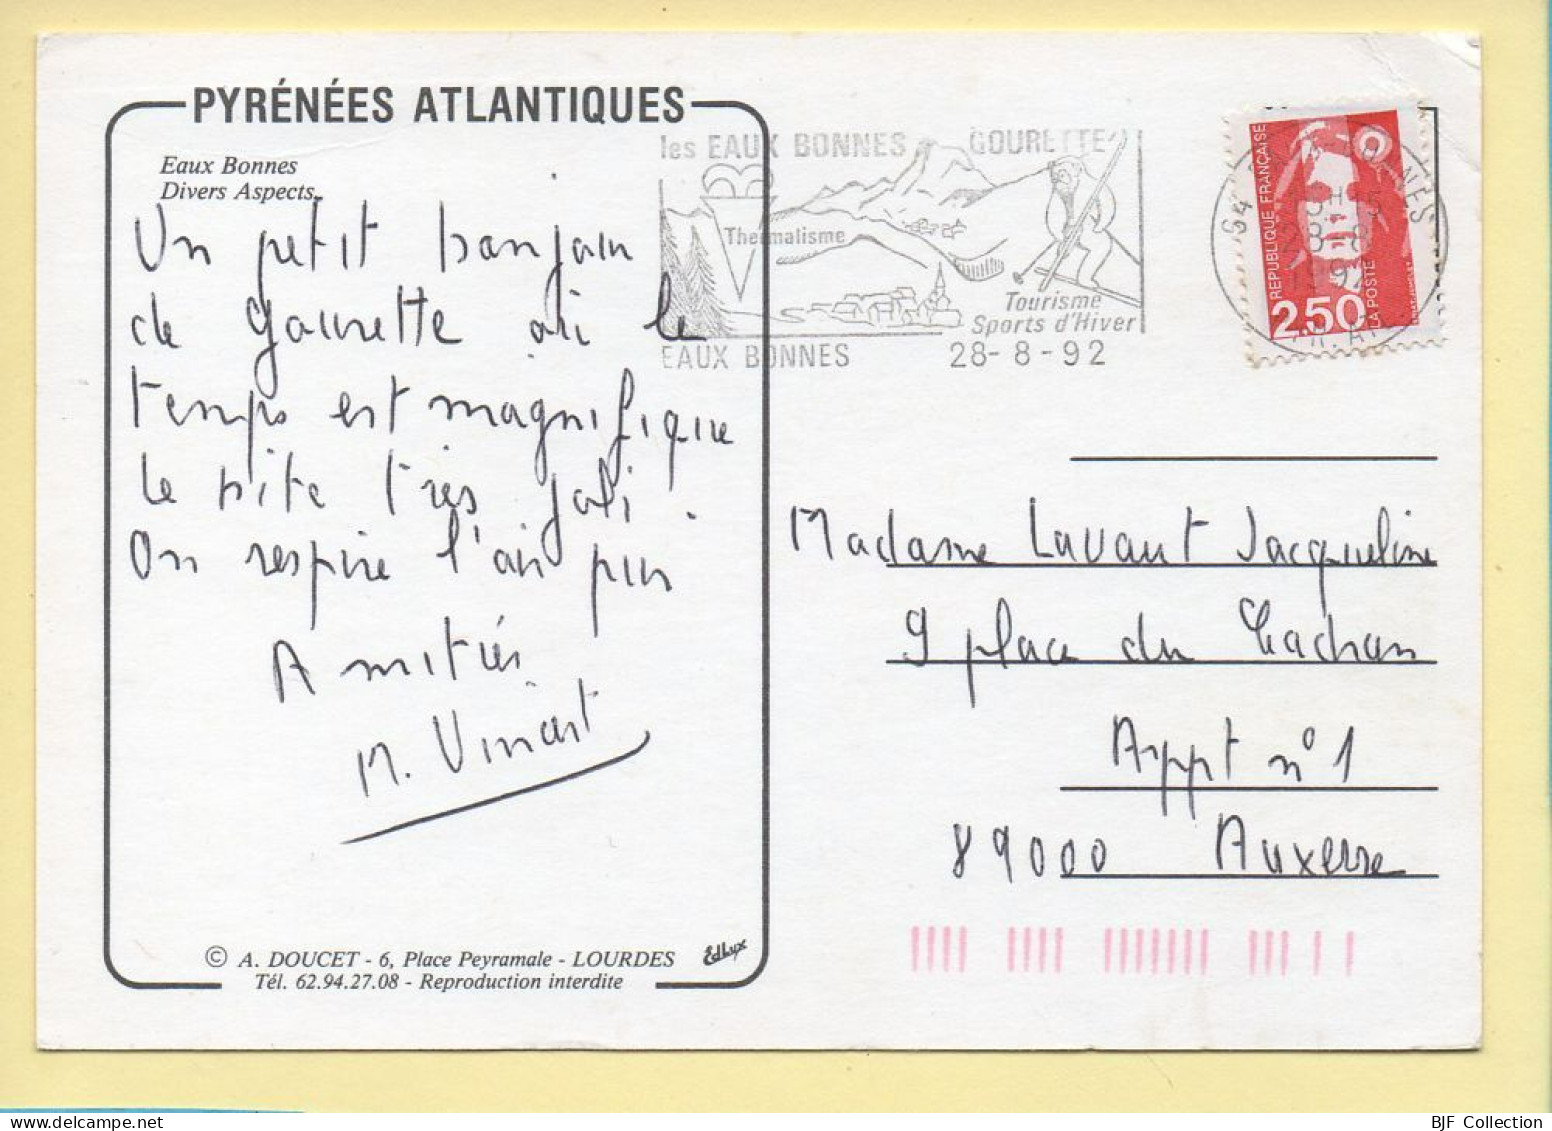 PYRÉNÉES ATLANTIQUES
Eaux Bonnes
Divers Aspects.
Un petit bonjour
de Gourette où le
temps est magnifique
le site très joli.
On respire l'air pur
Amitiés
M. Vinart
© A. DOUCET - 6, Place Peyramale - LOURDES
Tél. 62.94.27.08 - Reproduction interdite
Edlux
les EAUX BONNES GOURETTE
Thermalisme
Tourisme
Sports d'Hiver
EAUX BONNES 28-8-92
REPUBLIQUE FRANÇAISE
2,50
LA POSTE
64
28-8
Madame Lavaut Jacqueline
9 place du Cadran
Appt n°1
89000 Auxerre
BJF Collection